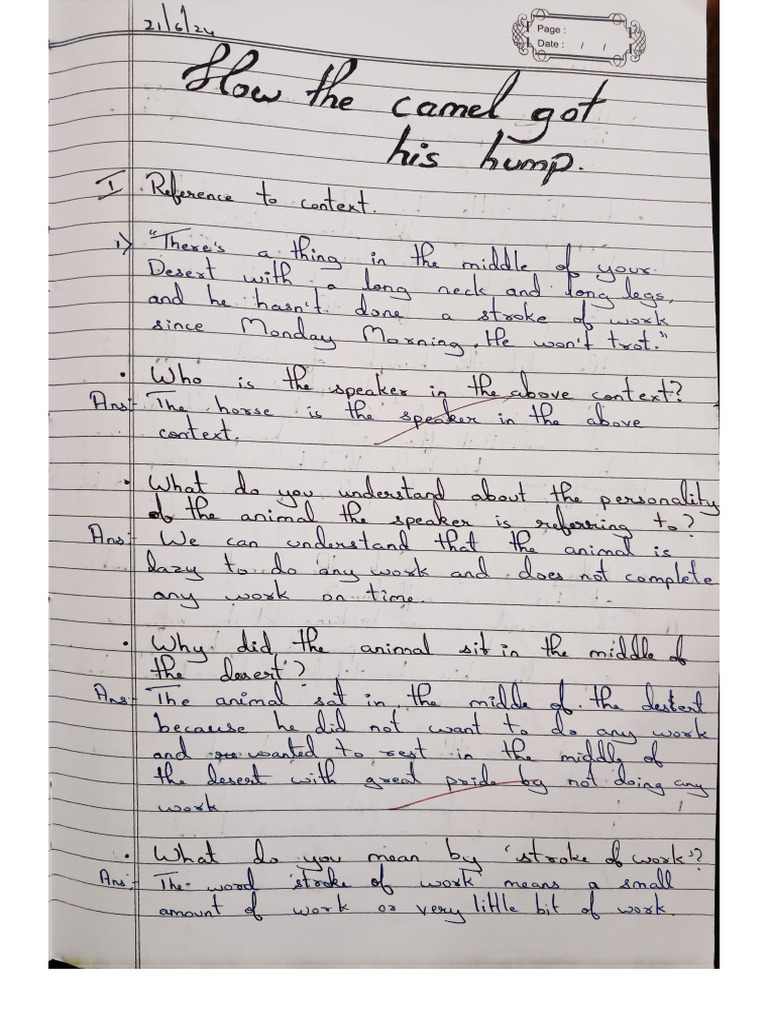 21/6/24
Page :
Date : / /
How the camel got
his hump.
I Reference to context.
1) "There's a thing in the middle of your
Desert with a long neck and long legs,
and he hasn't done a stroke of work
since Monday Morning, He won't trot."
• Who is the speaker in the above context?
Ans:- The horse is the speaker in the above
context.
• What do you understand about the personality
of the animal the speaker is referring to?
Ans:- We can understand that the animal is
lazy to do any work and does not complete
any work on time.
• Why did the animal sit in the middle of
the desert?
Ans:- The animal sat in the middle of the desert
because he did not want to do any work
and wanted to rest in the middle of
the desert with great pride by not doing any
work
• What do you mean by 'stroke of work'?
Ans:- The word stroke of work means a small
amount of work or very little bit of work.